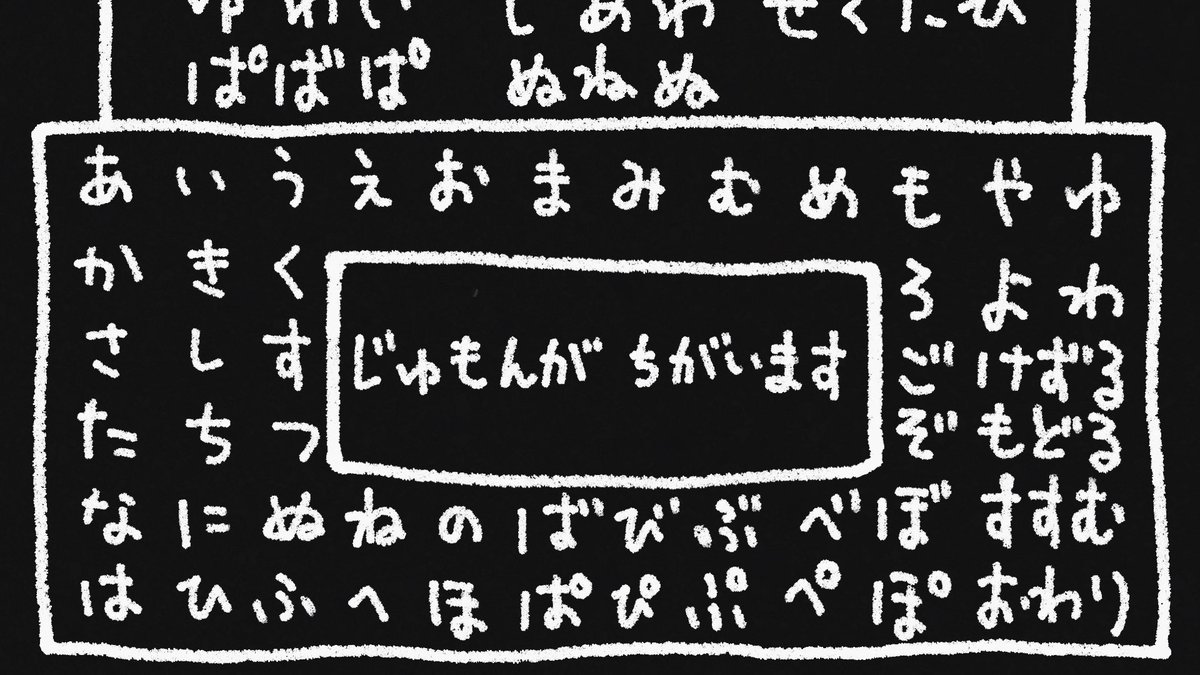 ぱばぱ ぬねぬ
あ い う え お ま み む め も や ゆ
か き く ろ よ わ
さ し す じゅもんが ちがいます ご けずる
た ち つ ぞ もどる
な に ぬ ね の ば び ぶ べ ぼ すすむ
は ひ ふ へ ほ ぱ ぴ ぷ ぺ ぽ おわり